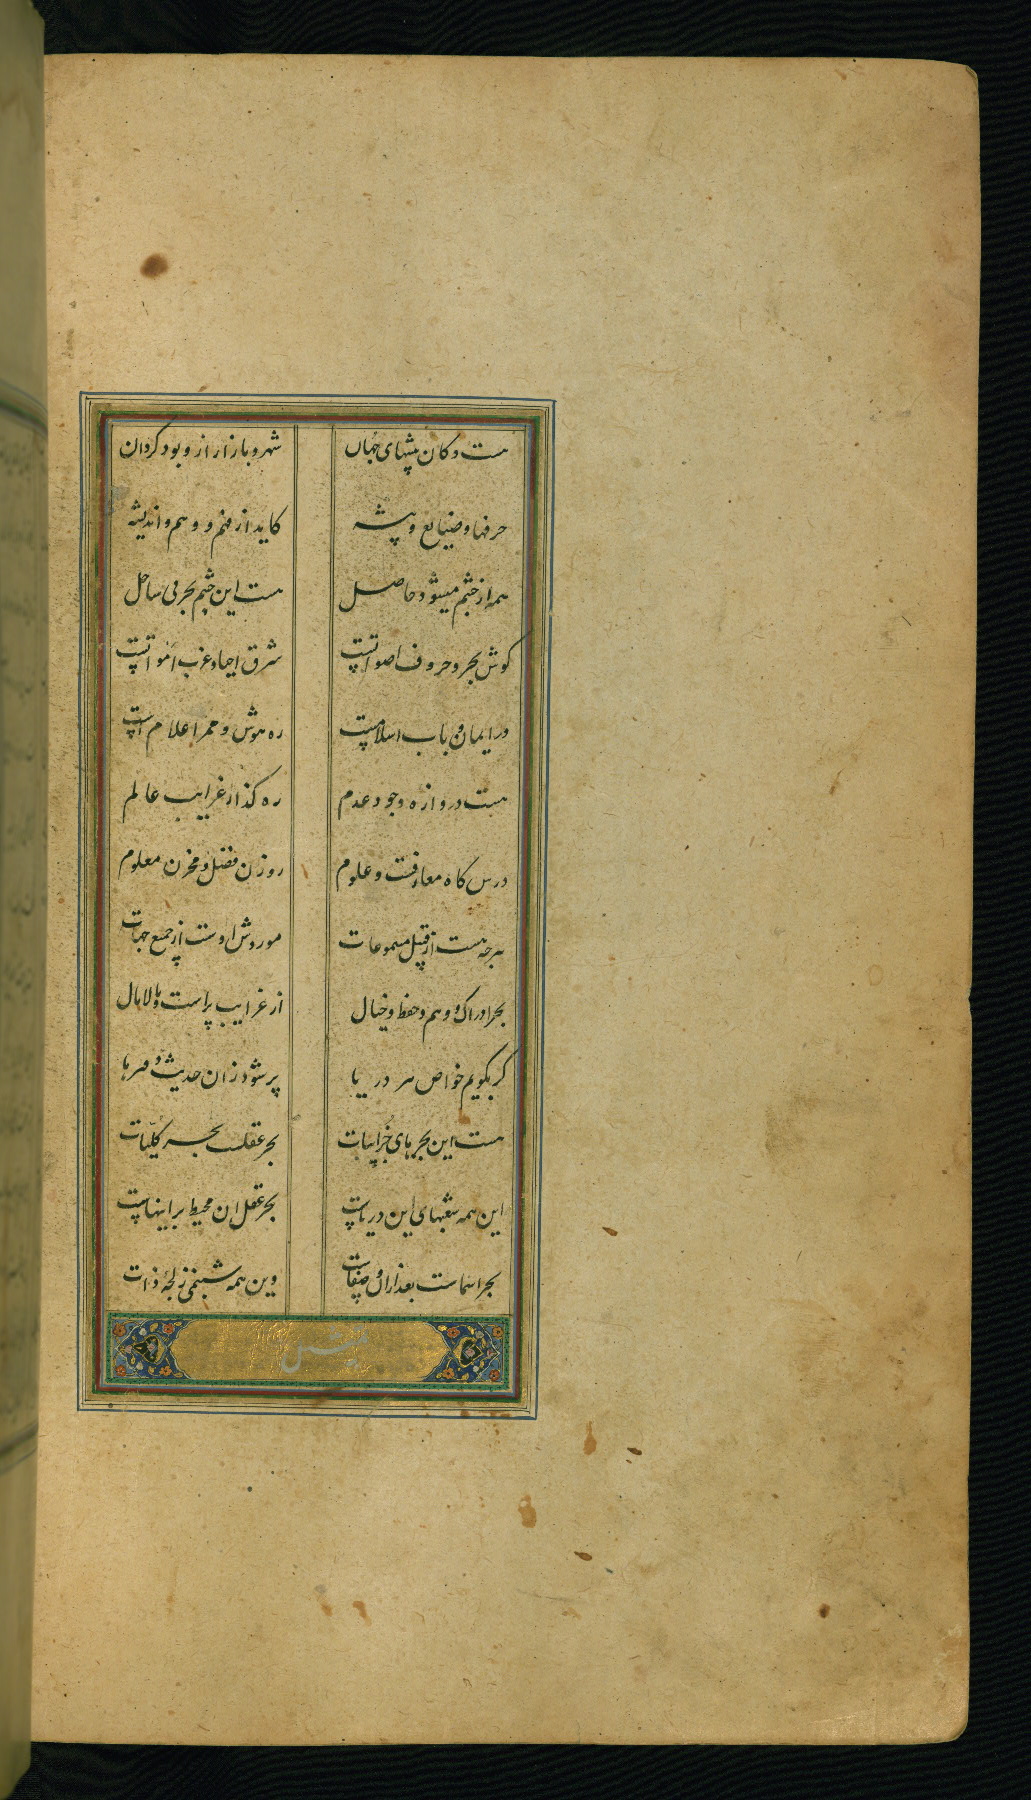 هست دکان پیشهای جهان شهر و بازار ازو بود گردان
حرفها و صنایع و پیشه کاید از فهم و وهم و اندیشه
همه از چشم میشود حاصل هست این چشم بحر بی ساحل
کوش بحر و حروف اصواتست شرق احیا و غرب امواتست
در ایمان و باب اسلامست ره هوش و ممر اعلامست
هست دروازه وجود عدم ره کذار غرایب عالم
درس کاه معارفست و علوم روزن فضل و مخزن معلوم
هرچه هست از قبیل مسموعات موروش اوست از جمیع جهات
بحر ادراک و وهم و حفظ و خیال از غرایب پر است و مالامال
کر بکویم خواص هر دریا پر شود زان حدیث دفترها
هست این بحرهای جزاییات بحر عقلست بحر کلیات
این همه شعبهای این دریاست بحر عقل ان محیط بر اینهاست
بحر اسماست بعد ازان و صفات وین همه شبنمی ز لجه ذات